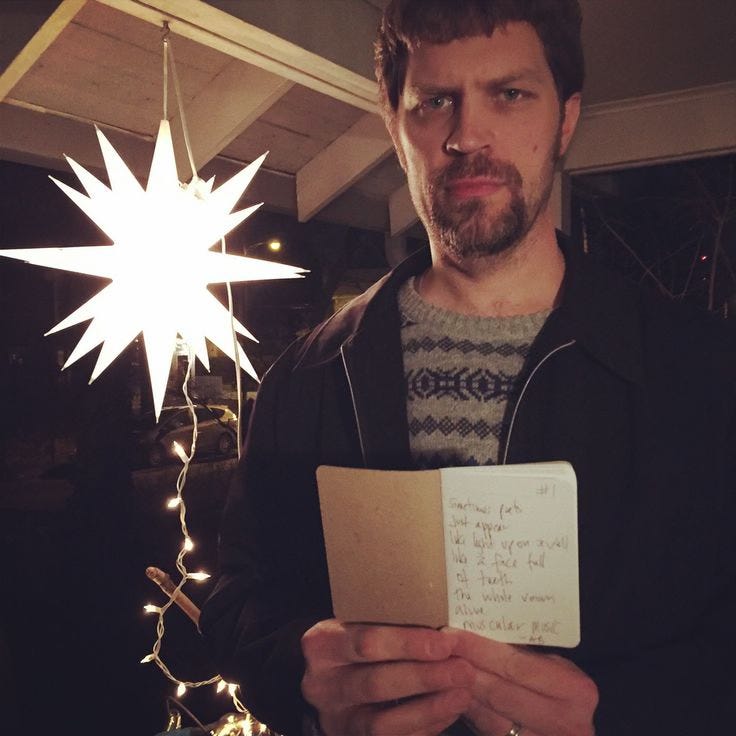 #1
Sometimes poets
Just appear
like light upon a wall
like a face full
of teeth
the whole room
alive.
muscular music